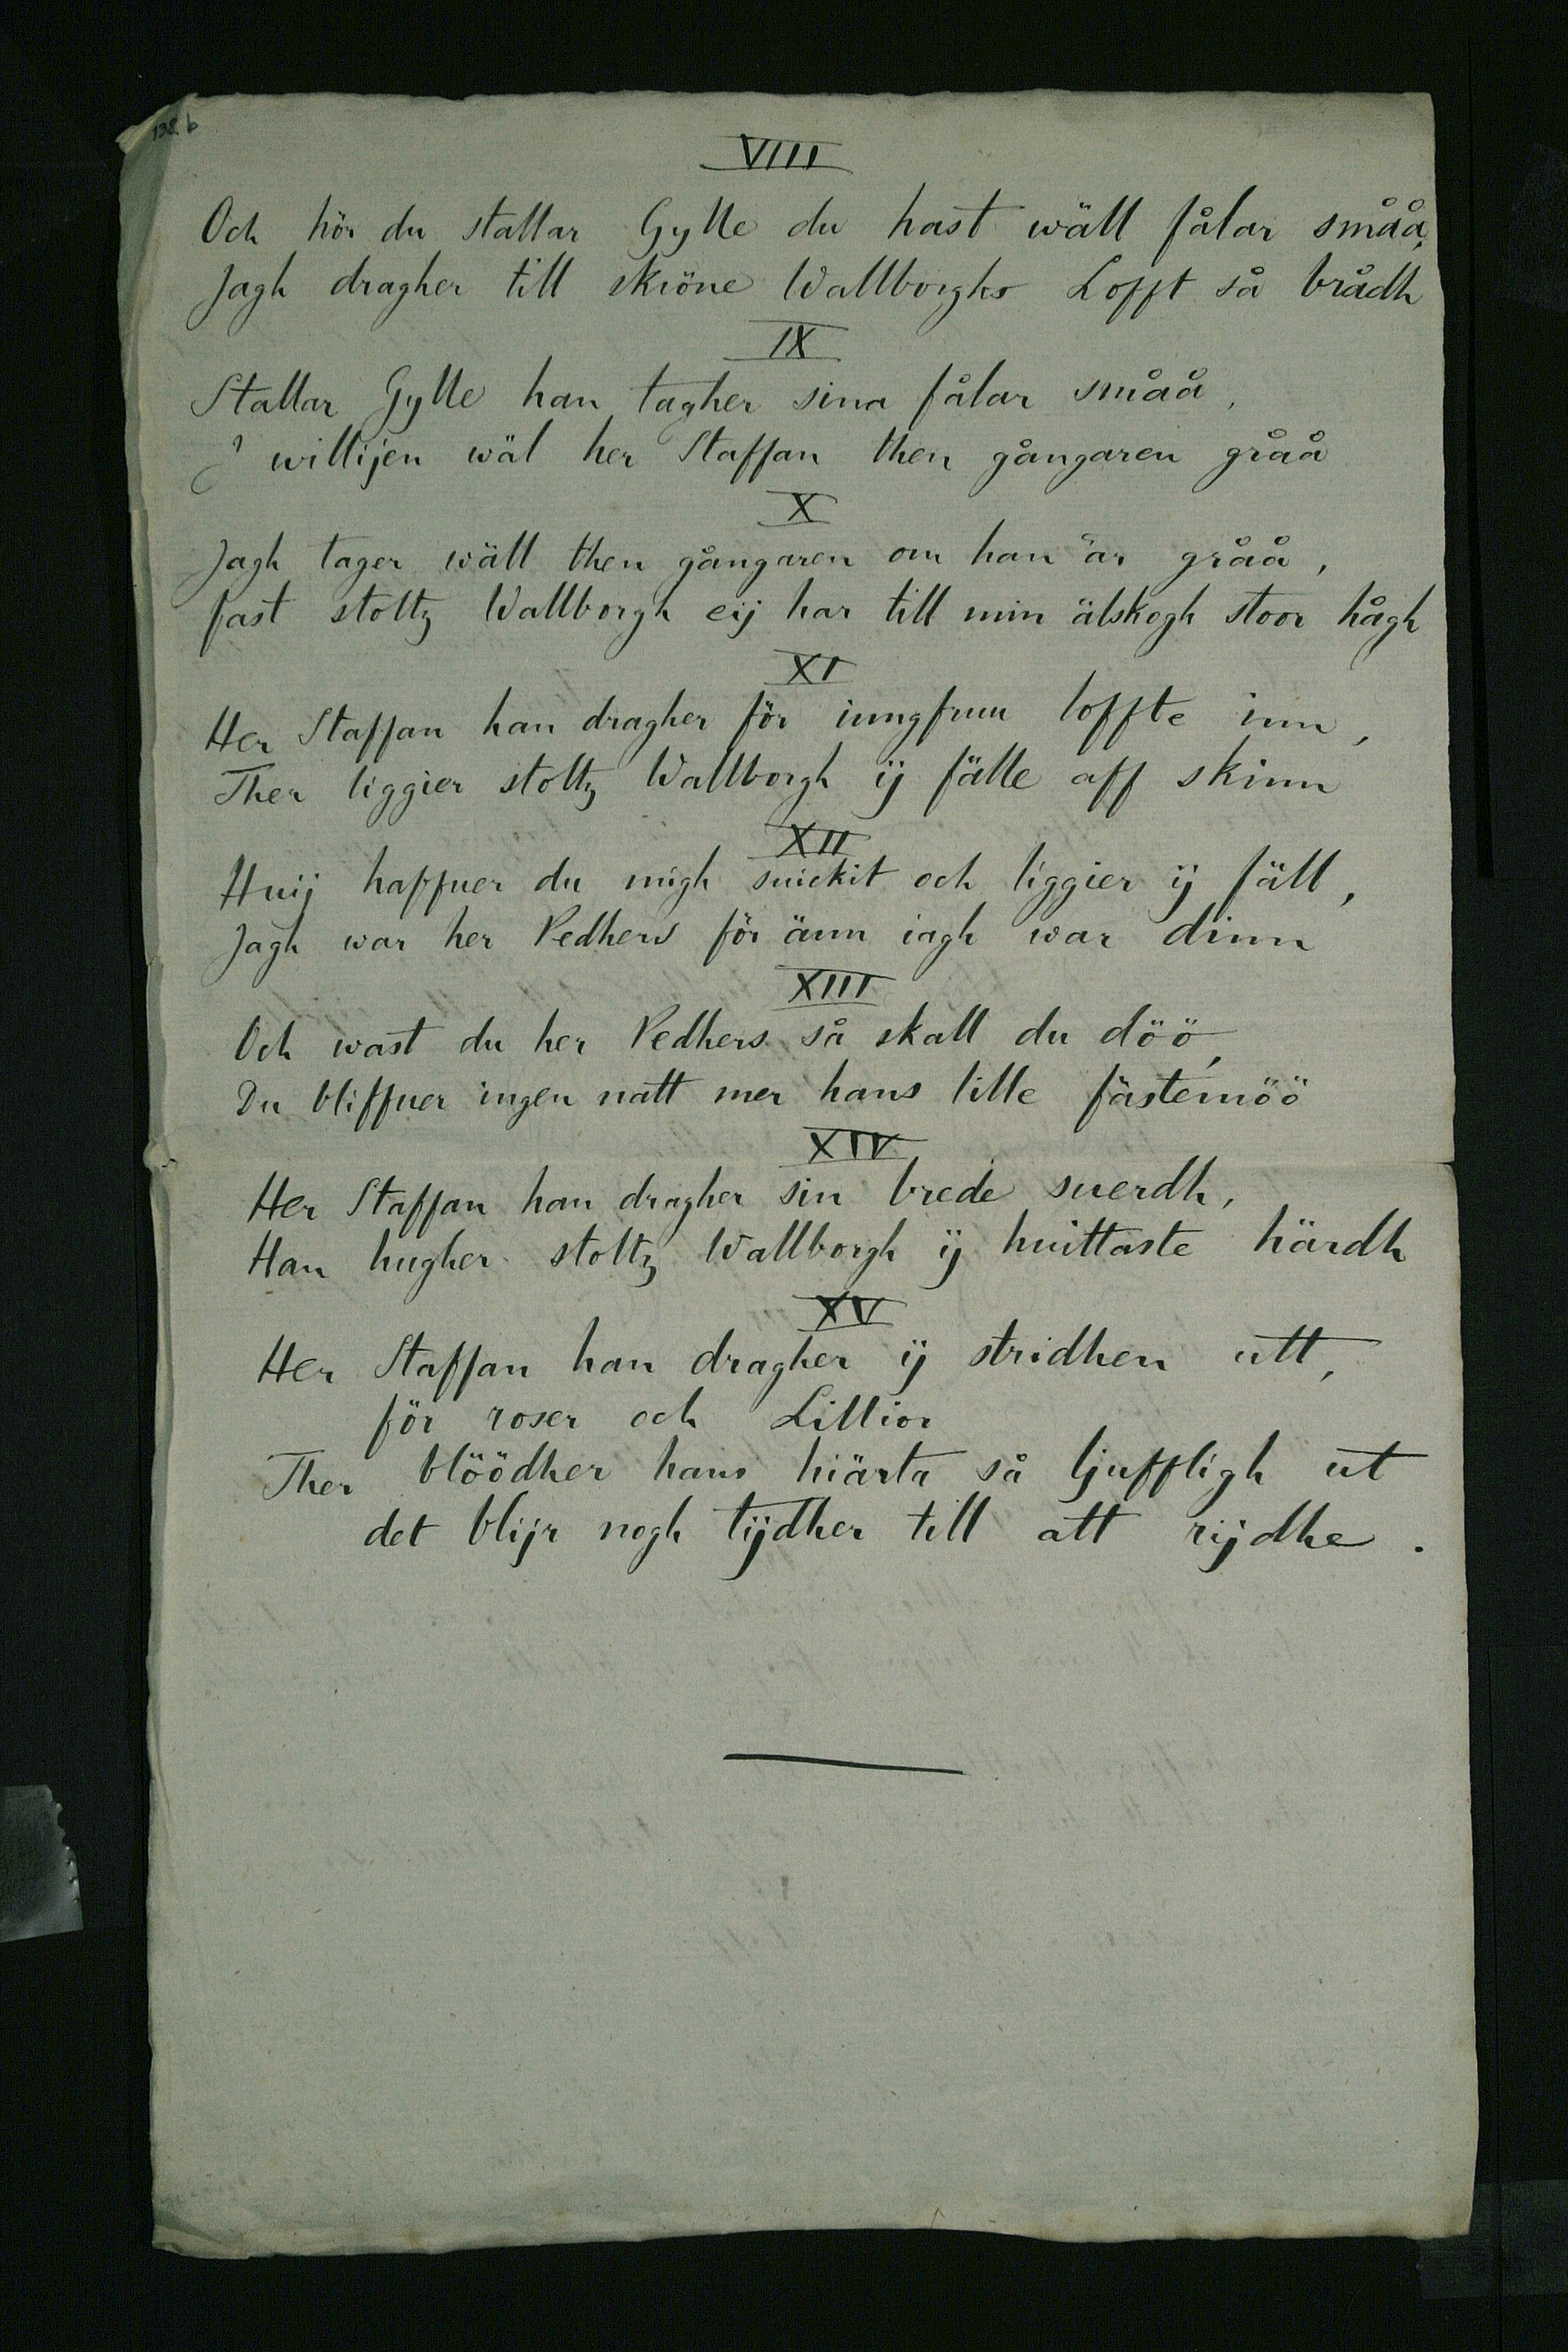 138 b
VIII
Och hör du stallar Gylle du hast wäll fålar småå,
Jagh dragher till skiöne Wallborghs Lofft så brådh
IX
Stallar Gylle han tagher sina fålar småå,
J willijen wäl her Staffan then gångaren gråå
X
Jagh tager wäll then gångaren om han är gråå,
fast stoltz Wallborgh eij har till min älskogh stoor hågh
XI
Her Staffan han dragher för iungfruu loffte inn,
Ther liggier stoltz Wallborgh ij fälle aff skinn
XII
Huij haffuer du migh suickit och liggier ij fäll,
Jagh war her Pedhers för änn iagh war dinn
XIII
Och wast du her Pedhers så skall du döö,
Du bliffuer ingen natt mer hans lille fästemöö
XIV
Her Staffan han dragher sin brede suerdh,
Han hugher stoltz Wallborgh ij huittaste härdh
XV
Her Staffan han dragher ij stridhen utt,
för roser och Lillior
Ther blöödher hans hiärta så ljuffligh ut
det blijr nogh tijdher till att rijdhe.